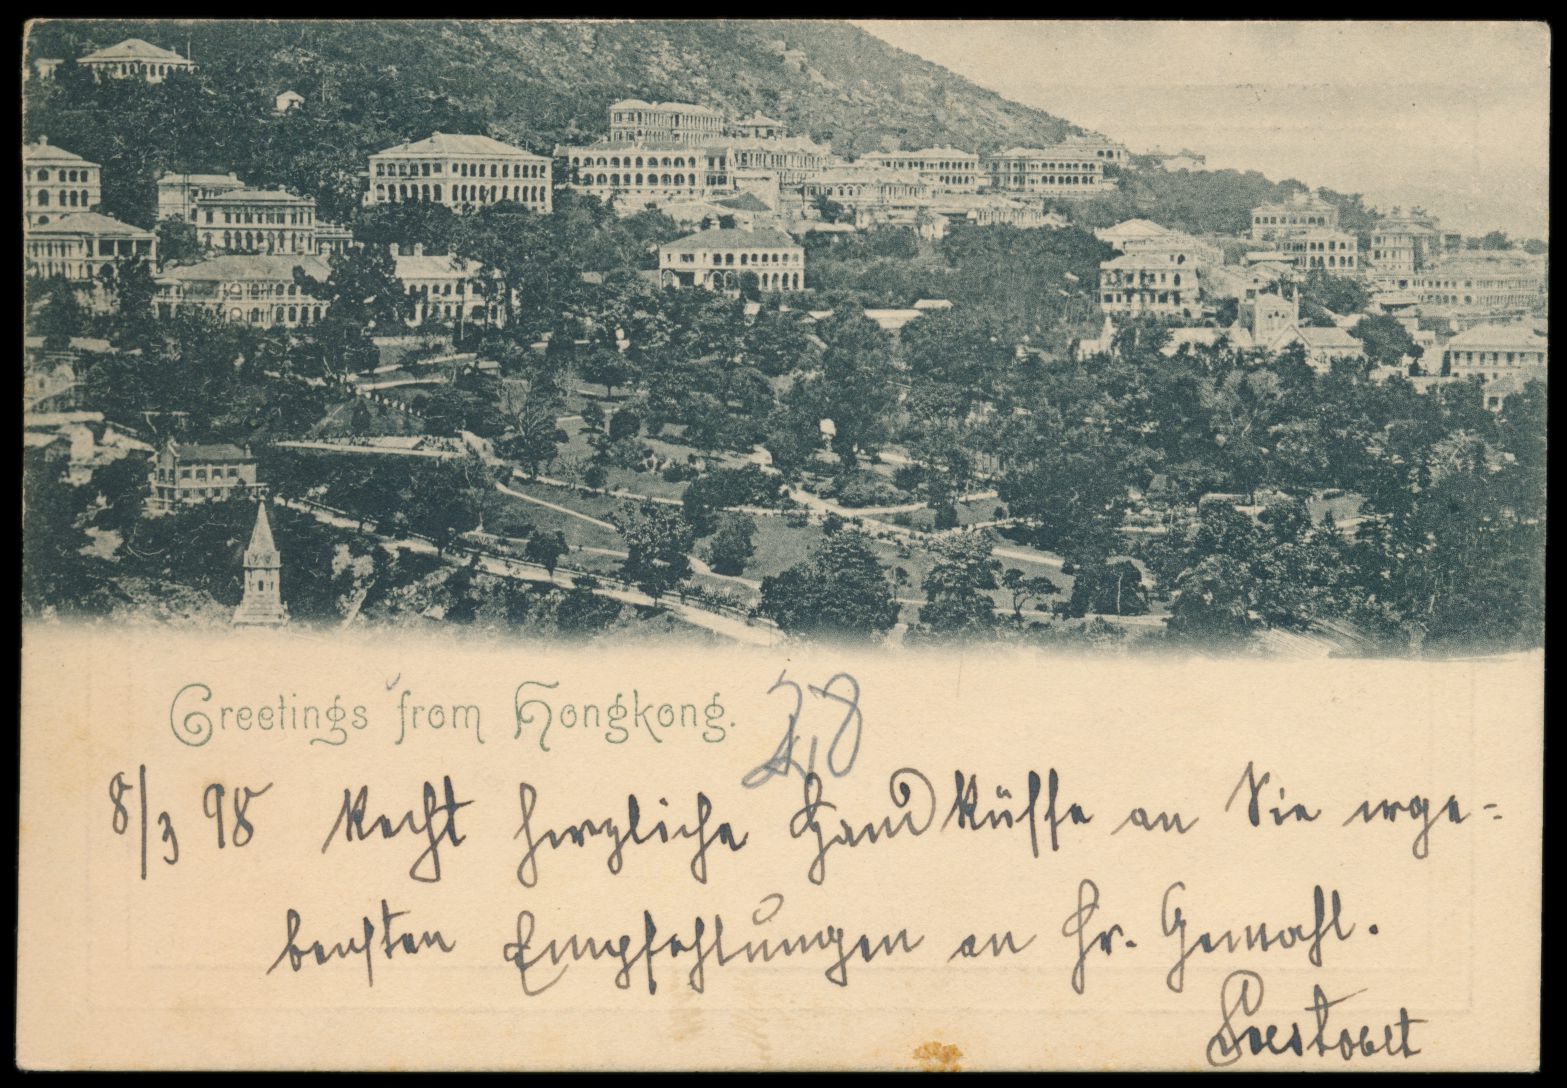 Greetings from Hongkong.
28
8/3 98 Recht herzliche Handküsse an Sie erge-
bensten Empfehlungen an Hr. Gemahl.